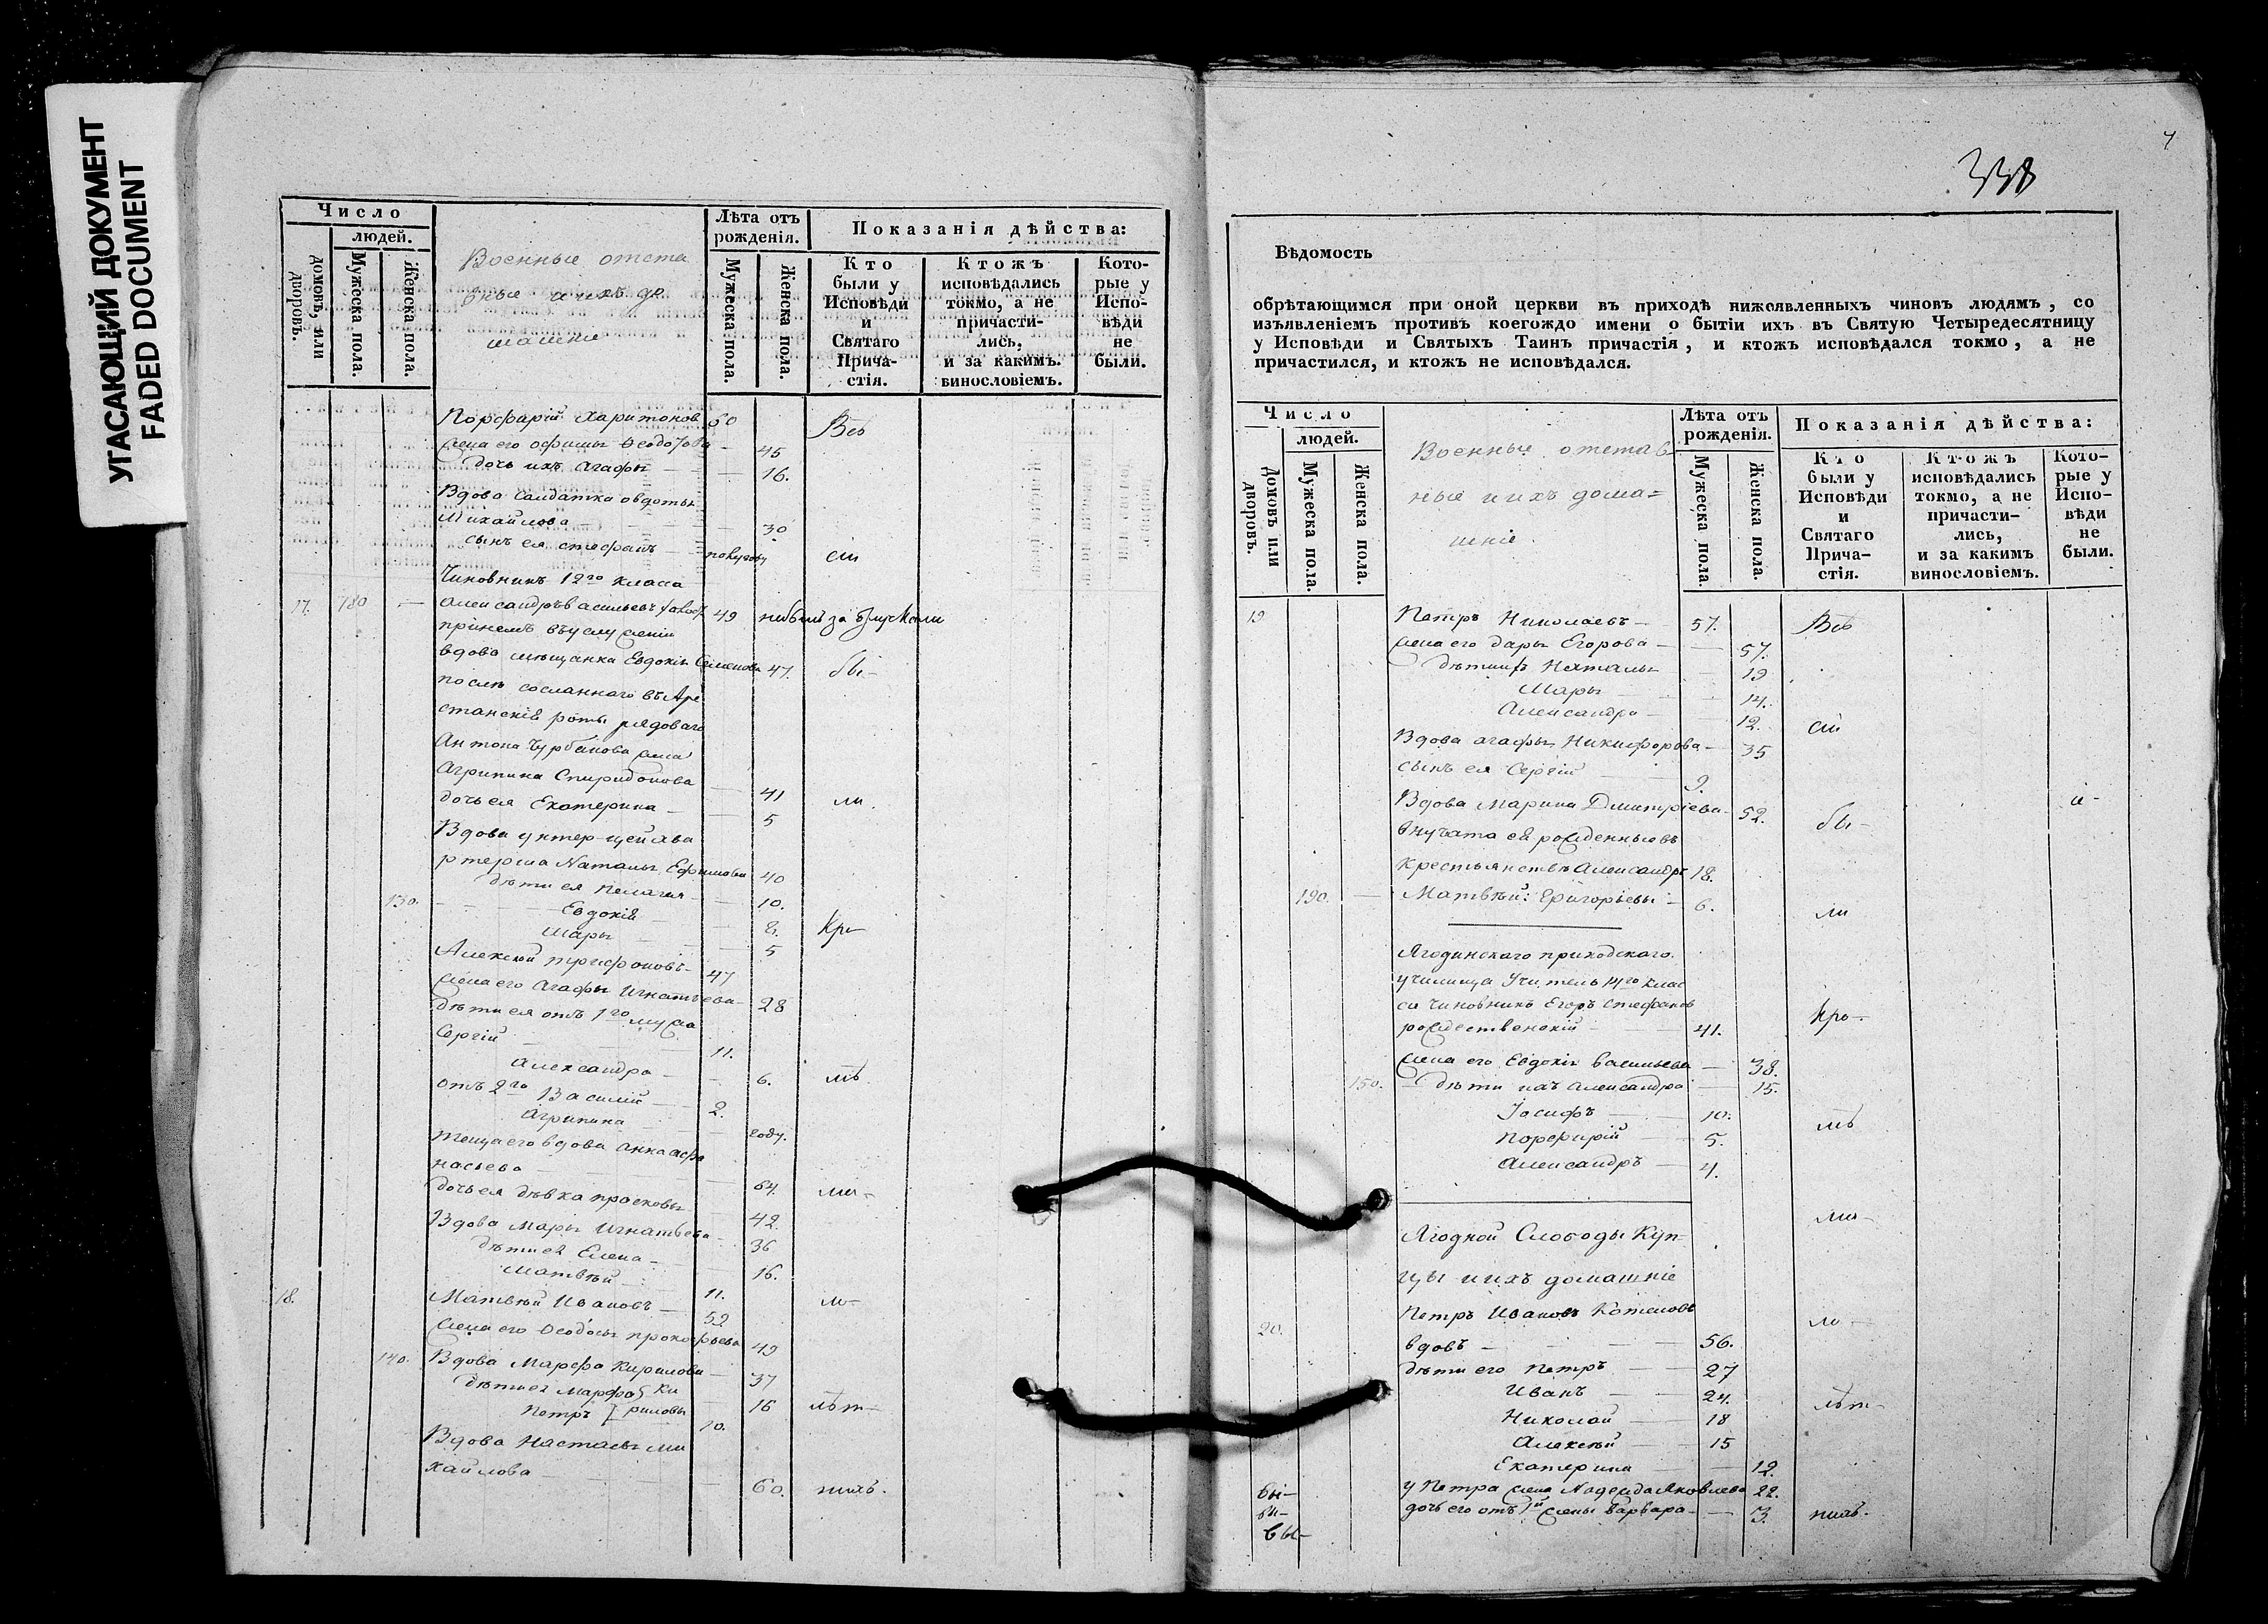 УГАСАЮЩИЙ ДОКУМЕНТ
FADED DOCUMENT
Число
людей.
домовъ, или дворовъ.
Мужеска пола.
Женска пола.
Военные отста
вные и ихъ до
машніе
Лѣта отъ
рожденія.
Мужеска пола.
Женска пола.
Показанія дѣйства:
Кто
были у
Исповѣди
и
Святаго
Прича-
стія.
Ктожъ
исповѣдались
токмо, а не
причасти-
лись,
и за какимъ.
винословіемъ.
Кото-
рые у
Испо-
вѣди
не
были.
Порфирій Харитонов 60 Всѣ
жена его 45
дочь ихъ Агафья — 16.
Вдова Солдатка Овдотья
Михайлова — 30
сынъ ея Стефанъ — полугоду сіи
Чиновникъ 12го класса
17. — Александръ Васильевъ 49
при немъ въ услуженіи
вдова мещанка Евдокія Семенова 47. бы-
послѣ сосланнаго въ Аре
станскія роты рядоваго
Антона жена
Агрипина Спиридонова 41
дочь ея Екатерина — 5 ли.
Вдова унтер-цейхва
ртерша Наталья Ефимова 40
дѣти ея Пелагея — 10.
130. Евдокія 8. Кро-
Марья 5
Алексѣй Трифоновъ — 47
жена его Агафья Игнатьева — 28
дѣти ея отъ 1го мужа
Сергій — 11.
Александра — 6. мѣ
отъ 2го Василій — 2.
Агрипина году.
теща его вдова Анна Афа
насьева — 64. ма-
дочь ея дѣвка Прасковья 42
Вдова Марья Игнатьева — 36
дѣти ея Елена — 16.
Матвѣй 11. ло-
18. Матвѣй Ивановъ — 52
жена его Ѳеодосья Прокофьева 49
140. Вдова Марфа Кирилова — 37
дѣти ея Марфа Ки 16 лѣт-
Петръ риловы 10.
Вдова Настасья Ми
хайлова — 60. нихъ.
7
338
Вѣдомость
обрѣтающимся при оной церкви въ приходѣ нижеявленныхъ чиновъ людямъ, со
изъявленіемъ противъ коегождо имени о бытіи ихъ въ Святую Четыредесятницу
у Исповѣди и Святыхъ Таинъ причастія, и ктожъ исповѣдался токмо, а не
причастился, и ктожъ не исповѣдался.
Число
людей.
Домовъ или дворовъ.
Мужеска пола.
Женска пола.
Военные отстав
ные и ихъ дома=
шніе.
Лѣта отъ
рожденія.
Мужеска пола.
Женска пола.
Показанія дѣйства:
Кто
были у
Исповѣди
и
Святаго
Прича-
стія.
Ктожъ
исповѣдались
токмо, а не
причасти-
лись,
и за какимъ
винословіемъ.
Кото-
рые у
Испо-
вѣди
не
были.
19 Петръ Николаевъ — 57. Всѣ
жена его Дарья Егорова — 57.
дѣти ихъ Наталья 19
Марья 14.
Александра — 12. сіи
Вдова Агафья Никифорова — 35
сынъ ея Сергій 9.
Вдова Марина Дмитріева — 52. бы-
внучата ея рожденные въ
крестьянствѣ Александръ 18.
190. — Матвѣй: Григорьевы — 6. ли
Ягодинскаго приходскаго
училища Учитель 14го клас
са чиновникъ Егоръ Стефановъ
рождественскій 41. Кро-
жена его Евдокія Васильева — 38.
150. — дѣти ихъ Александра 15.
Іосифъ — 10. мѣ
Порфирій 5.
Александръ — 4.
ма-
Ягодной Слободы Куп-
цы и ихъ домашніе
20. Петръ Ивановъ Котеловъ ло —
вдовъ — 56.
дѣти его Петръ — 27
Иванъ — 24. лѣт-
Николай — 18
Алексѣй — 15
Екатерина — 12.
у Петра жена Надежда Яковлева 22.
дочь его отъ 1й жены Варвара — 3. нихъ.
бы-
бы-
бы-